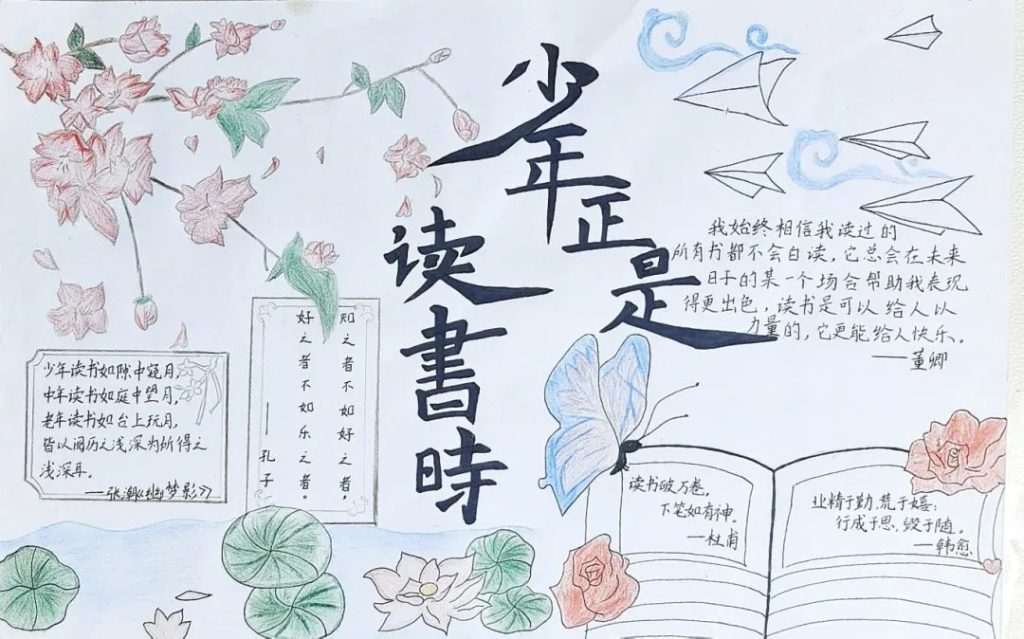 少年正是
读書時
我始终相信我读过的
所有书都不会白读，它总会在未来
日子的某一个场合帮助我表现
得更出色，读书是可以给人以
力量的，它更能给人快乐。
——董卿
知之者不如好之者，
好之者不如乐之者。
——孔子
少年读书如隙中窥月，
中年读书如庭中望月，
老年读书如台上玩月，
皆以阅历之浅深为所得之
浅深耳。
——张潮《幽梦影》
读书破万卷，
下笔如有神。
——杜甫
业精于勤，荒于嬉；
行成于思，毁于随。
——韩愈